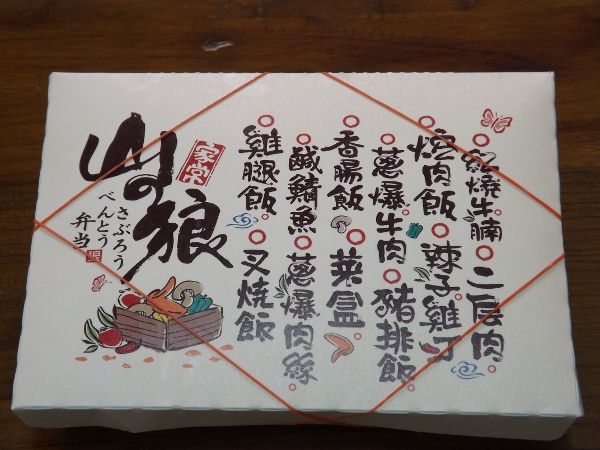 山の狼
家常
さぶろう
べんとう
弁当
紅燒牛腩 二層肉
燒肉飯 辣子雞丁
蔥爆牛肉 豬排飯
香腸飯 菜盒
鹹鯖魚 蔥爆肉絲
雞腿飯 叉燒飯